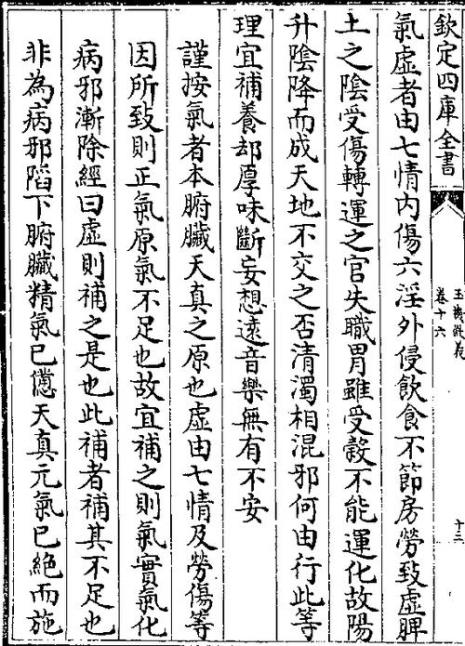 欽定四庫全書
玉機微義
卷十六
十三
氣虛者由七情內傷六淫外侵飲食不節房勞致虛脾
土之陰受傷轉運之官失職胃雖受穀不能運化故陽
升陰降而成天地不交之否清濁相混邪何由行此等
理宜補養却厚味斷妄想遠音樂無有不安
謹按氣者本腑臟天真之原也虛由七情及勞傷等
因所致則正氣原氣不足也故宜補之則氣實氣化
病邪漸除經曰虛則補之是也此補者補其不足也
非為病邪䧟下腑臟精氣已憊天真元氣已絶而施